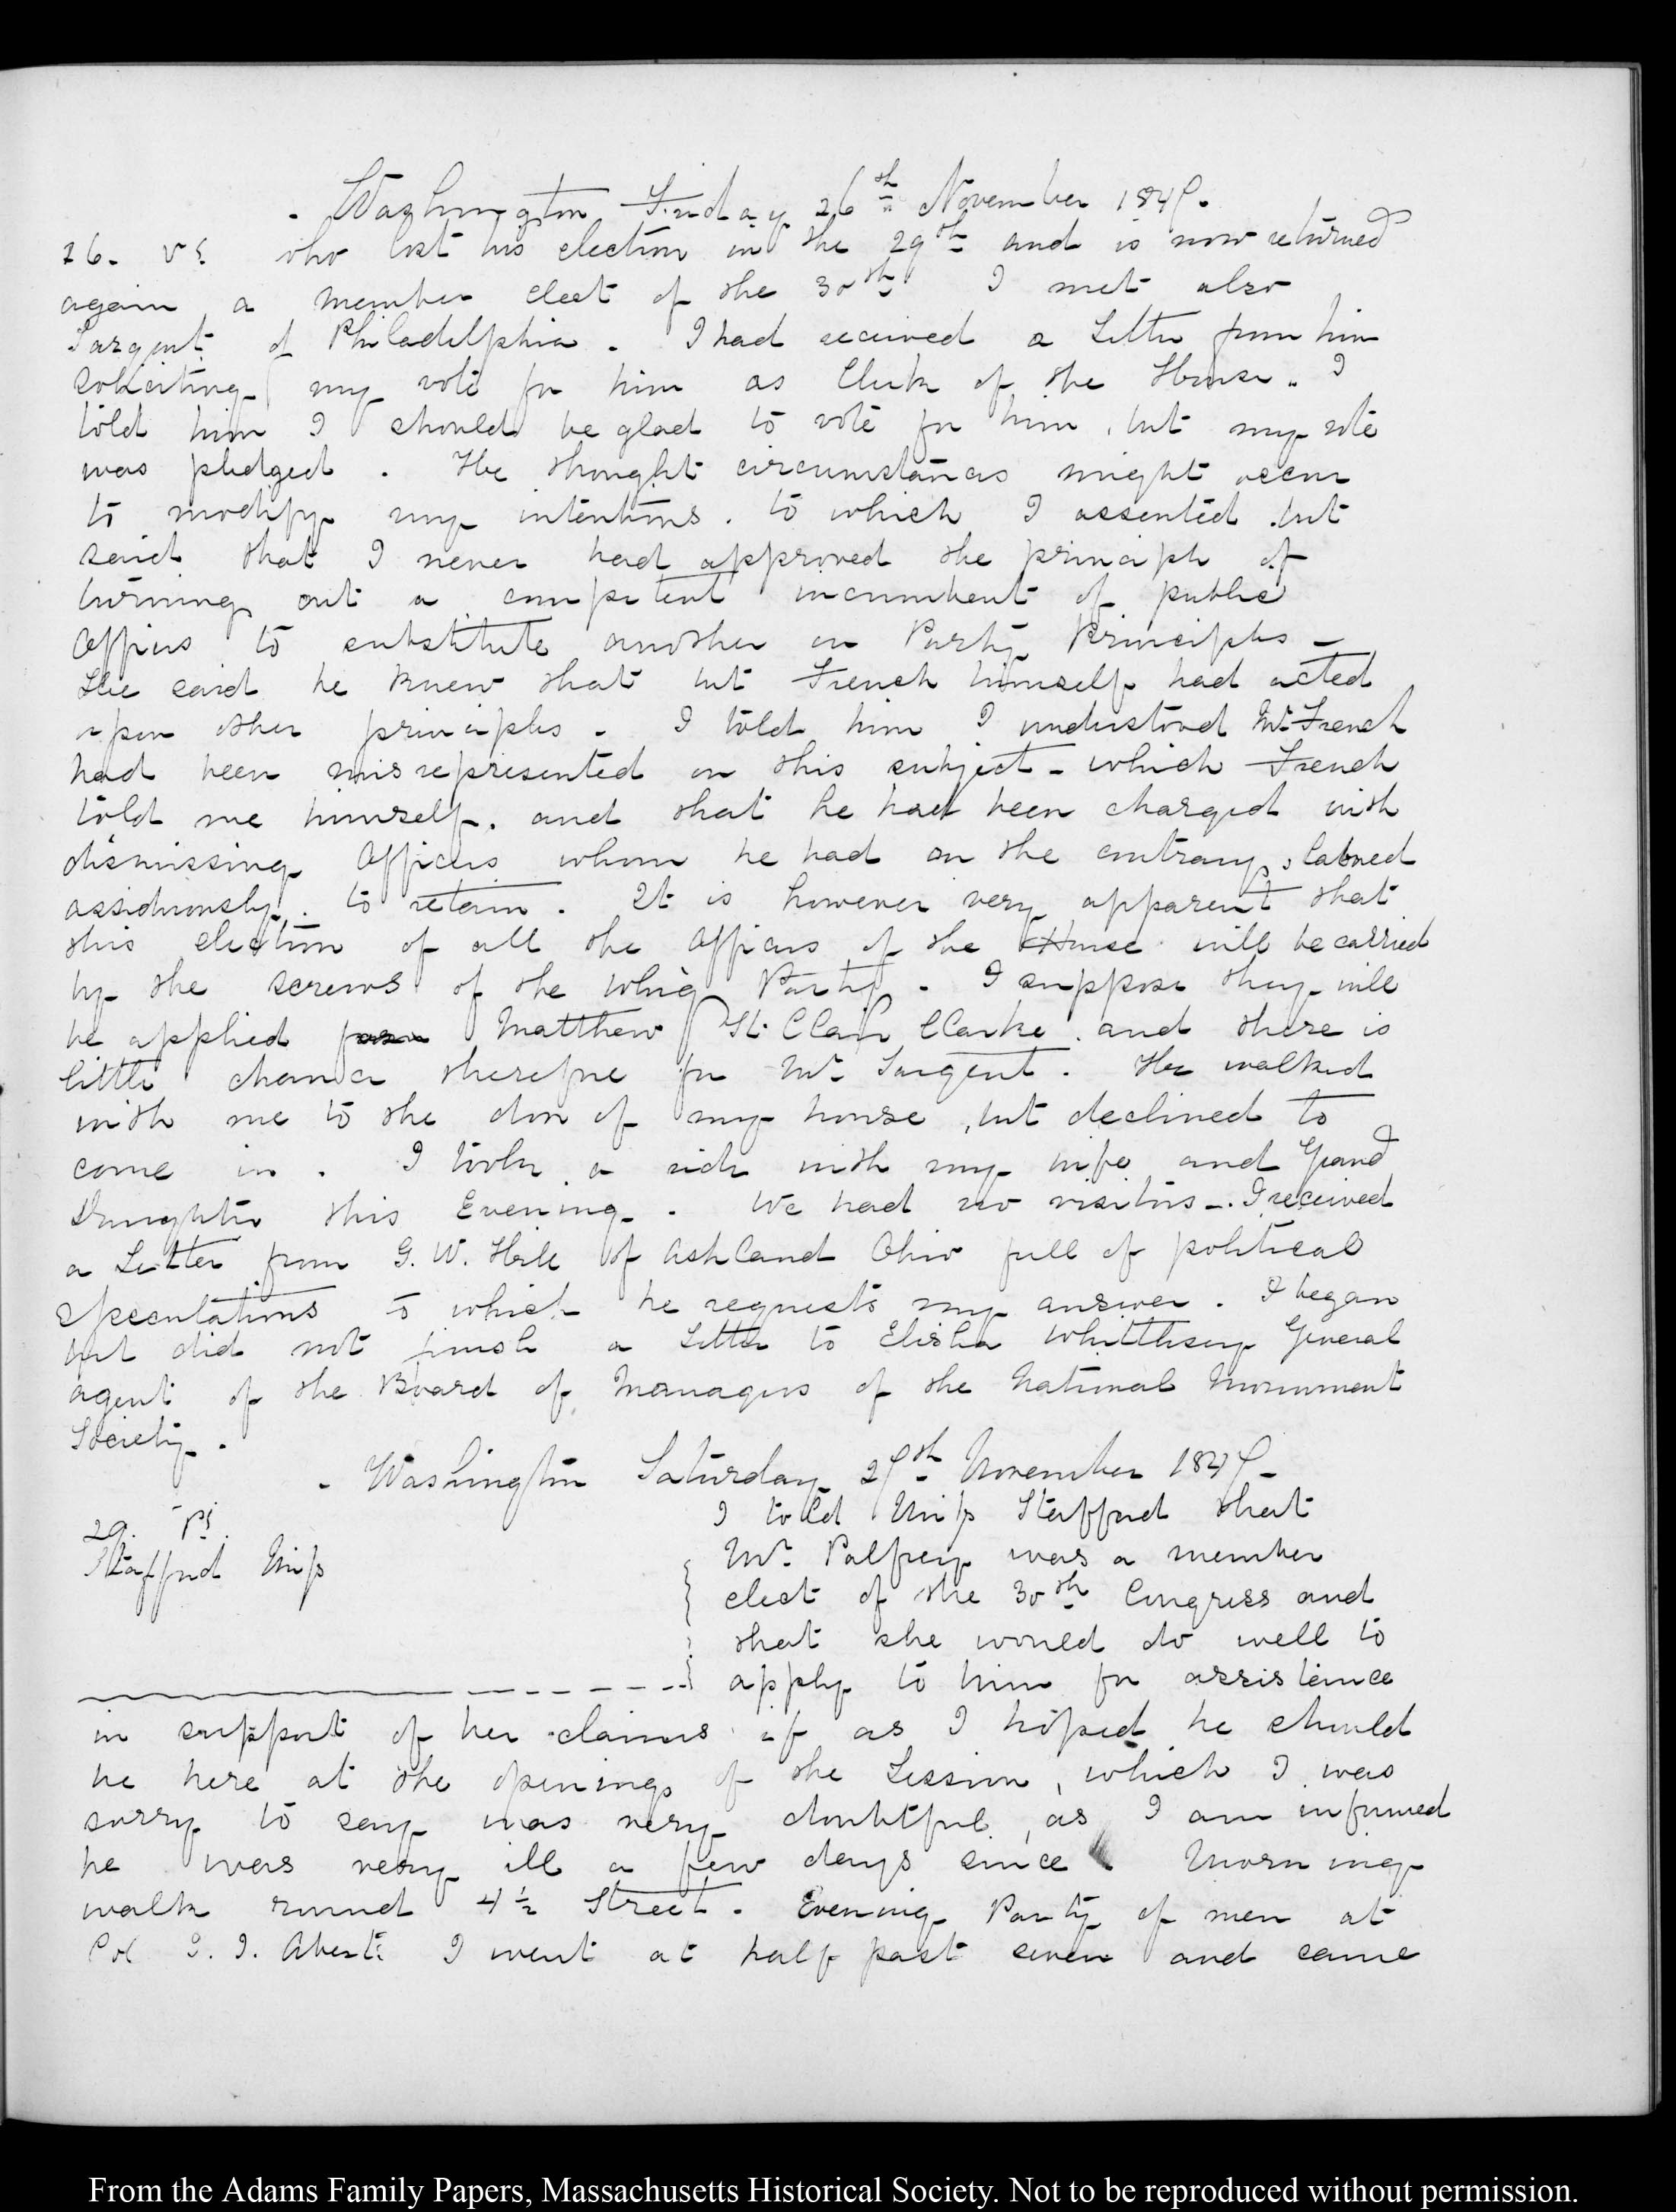 . Washington Friday 26th November 1847.
26. V s. who lost his election in the 29th and is now returned
again a member elect of the 30th I met also
Sargent of Philadelphia. I had received a Letter from him
soliciting my vote for him as Clerk of the House. I
told him I should be glad to vote for him, but my vote
was pledged. He thought circumstances might occur
to modify my intentions. to which I assented but
said that I never had approved the principle of
turning out a competent incumbent of public
Offices to substitute another on Party Principles—
He said he knew that but French himself had acted
upon other principles. I told him I understood Mr. French
had been misrepresented on this subject—which French
told me himself, and that he had been charged with
dismissing Officers whom he had on the contrary, labored
assiduously to retain. It is however very apparent that
this election of all the Officers of the House will be carried
by the screws of the Whig Party. I suppose they will
be applied for Matthew St. Clair Clarke. and there is
little chance therefore for Mr. Sargent. He walked
with me to the door of my house, but declined to
come in. I took a ride with my wife and Grand
Daughter this Evening. We had no visitors—. I received
a Letter from G. W. Hill of Ashland Ohio full of political
speculations to which he requests my answer. I began
but did not finish a Letter to Elisha Whittlesey General
agent of the Board of Managers of the National Monument
Society.
. Washington Saturday 27th November 1847—
29. V s. I told Miss Stafford that
Stafford Miss Mr. Palfrey was a member
elect of the 30th Congress and
that she would do well to
apply to him for assistance
in support of her claims if as I hoped he should
be here at the opening of the Session, which I was
sorry to say was very doubtful, as I am informed
he was very ill a few days since. Morning
walk round 4½ Street. Evening Party of men at
Col J. J. Abert's I went at half past seven and came
From the Adams Family Papers, Massachusetts Historical Society. Not to be reproduced without permission.